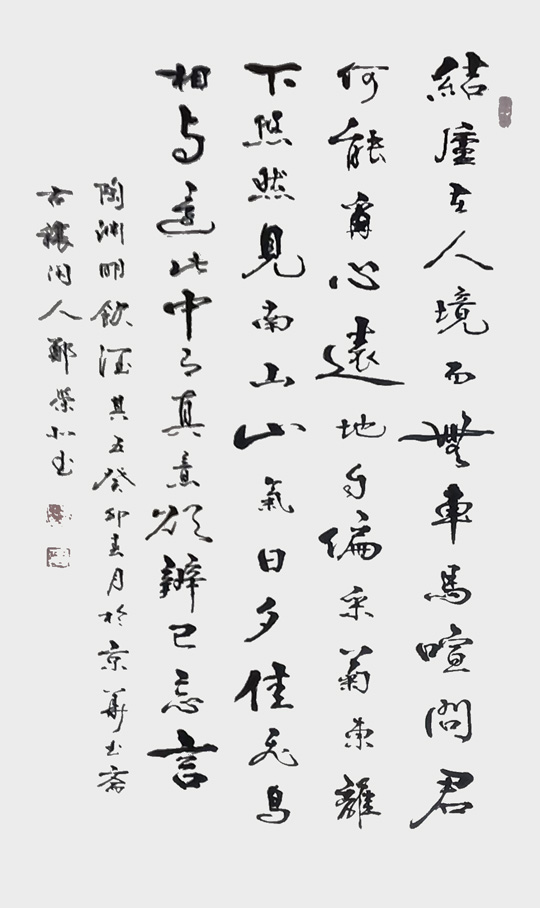 結廬在人境而無車馬喧問君
何能爾心遠地自偏采菊東籬
下悠然見南山山氣日夕佳飛鳥
相与還此中有真意欲辨已忘言
陶渊明飲酒其五癸卯春月於京華书斋
古穰闲人鄭榮书